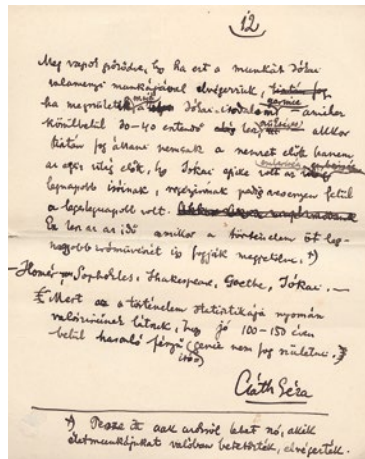 12
Meg vagyok győződve, hogy ha ezt a munkát Jókai
valamennyi munkájával elvégezzük,
ha megszületik a Jókai-irodalom amikor
körülbelül 30-40 esztendő akkor
tisztán fog állani nemcsak a nemzet előtt hanem
az egész világ előtt, hogy Jókai egyike volt az
legnagyobb íróinak, regényírónak pedig versenyen felül
a legeslegnagyobb volt.
Ez lesz az az idő amikor a történelem öt leg-
nagyobb íróművészét így fogják megjelölni. *)
— Homér, Sophokles, Shakespeare, Goethe, Jókai. —
Mert az a történelem statisztikája nyomán
valószínűnek látszik, hogy jó 100-150 éven
belül hasonló fényű genie nem fog születni.
Csáth Géza
*) Persze itt csak azokról lehet szó, akik
életmunkájukat valóban befejezték, elvégezték.